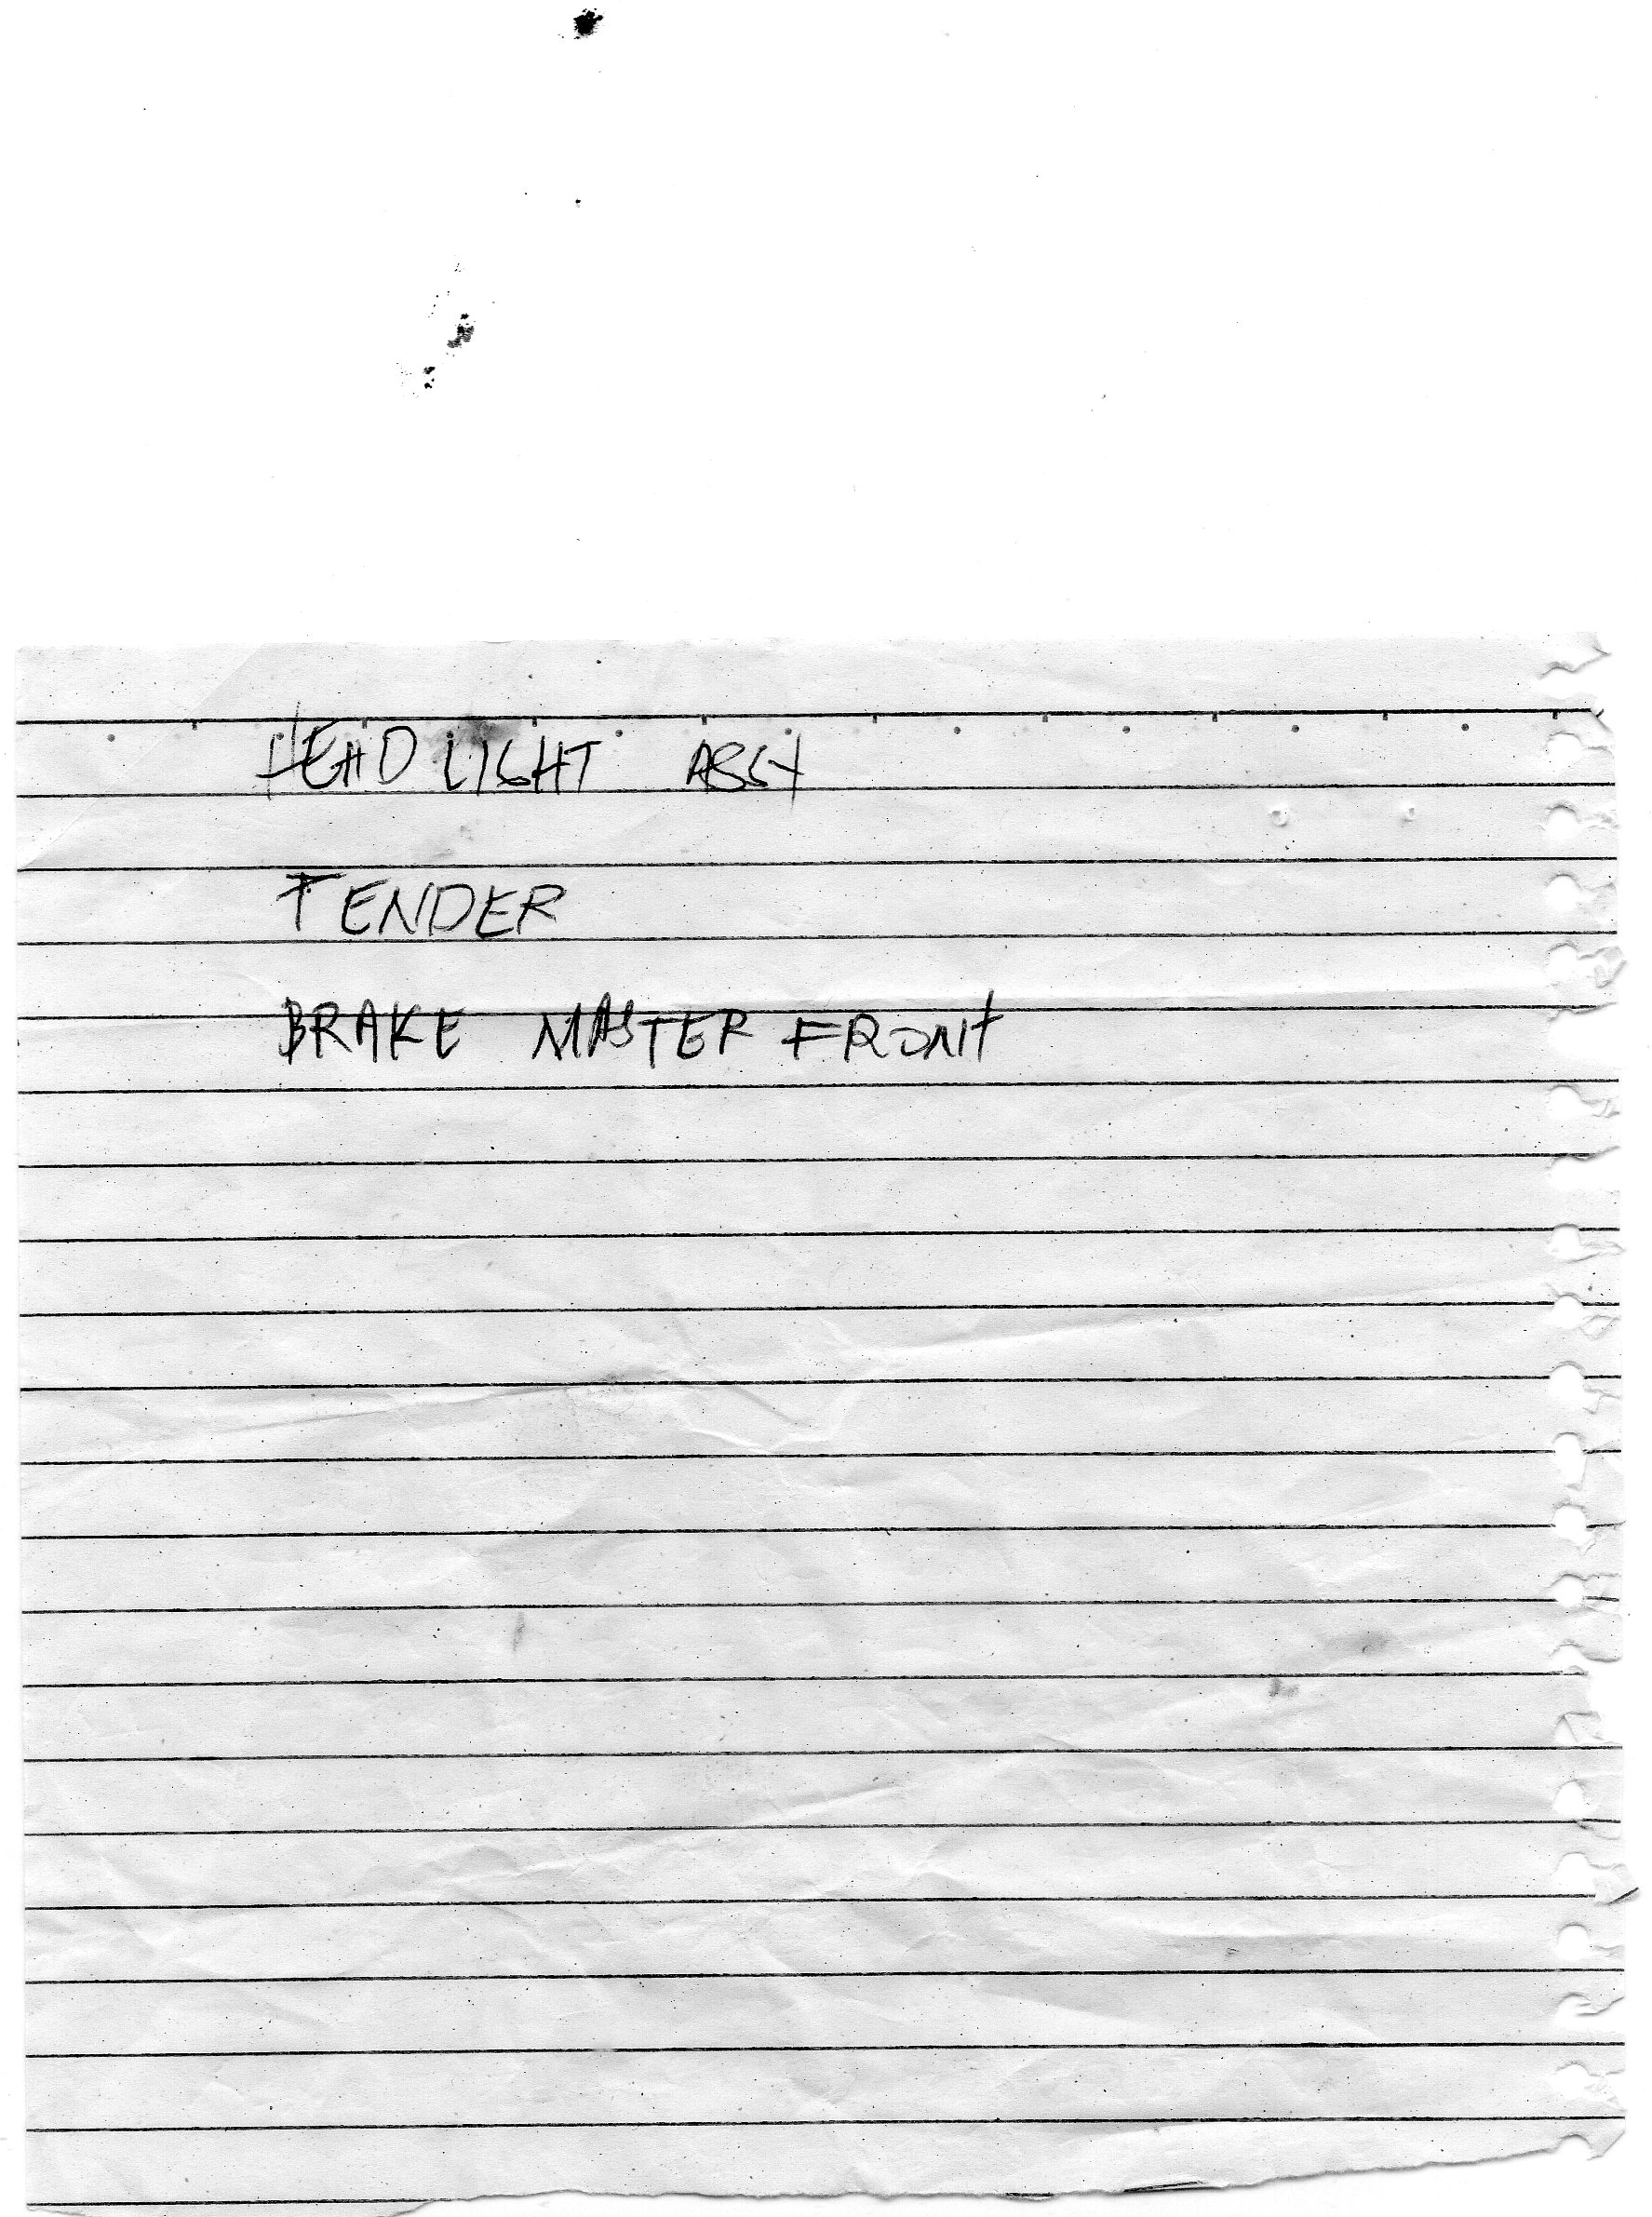 HEAD LIGHT ASSY
FENDER
BRAKE MASTER FRONT